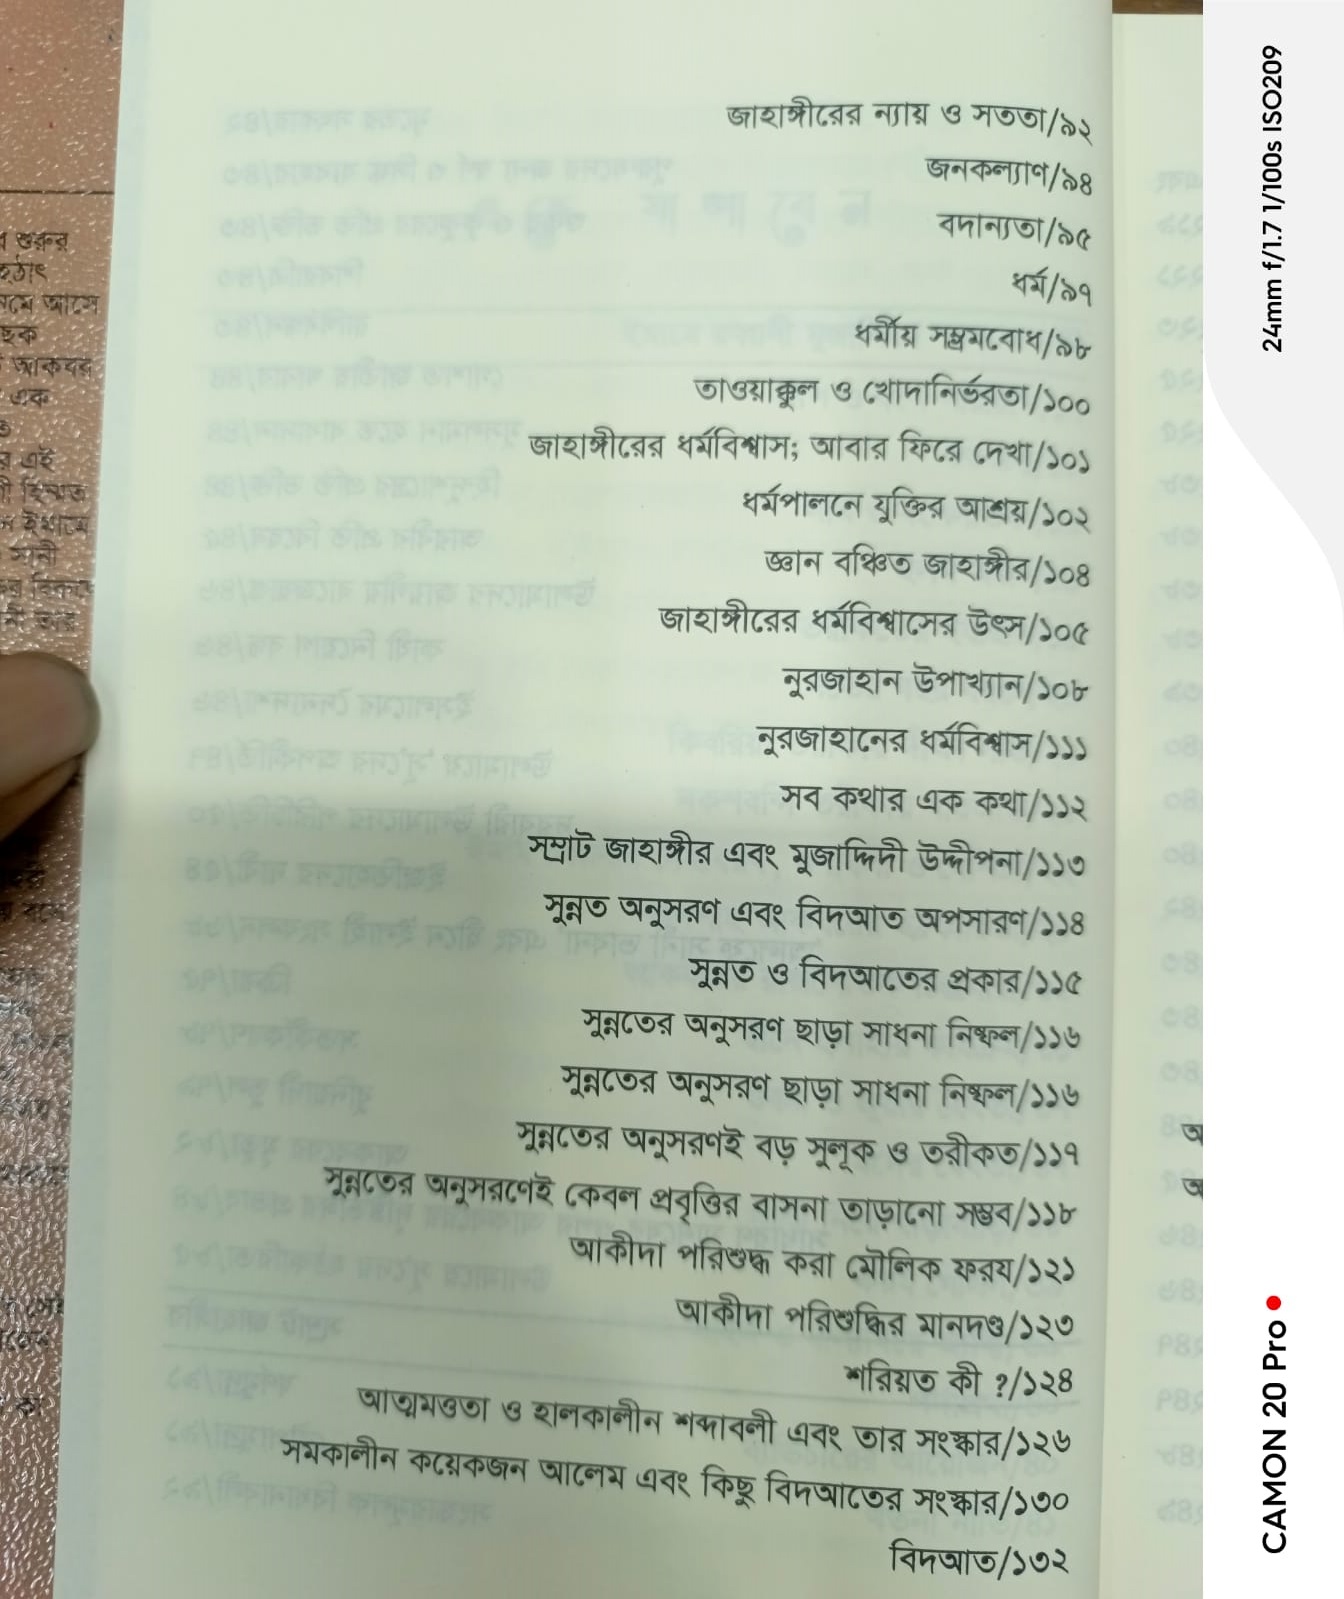 জাহাঙ্গীরের ন্যায় ও সততা/৯২
জনকল্যাণ/৯৪
বদান্যতা/৯৫
ধর্ম/৯৭
ধর্মীয় সম্ভ্রমবোধ/৯৮
তাওয়াক্কুল ও খোদানির্ভরতা/১০০
জাহাঙ্গীরের ধর্মবিশ্বাস; আবার ফিরে দেখা/১০১
ধর্মপালনে যুক্তির আশ্রয়/১০২
জ্ঞান বঞ্চিত জাহাঙ্গীর/১০৪
জাহাঙ্গীরের ধর্মবিশ্বাসের উৎস/১০৫
নুরজাহান উপাখ্যান/১০৮
নুরজাহানের ধর্মবিশ্বাস/১১১
সব কথার এক কথা/১১২
সম্রাট জাহাঙ্গীর এবং মুজাদ্দিদী উদ্দীপনা/১১৩
সুন্নত অনুসরণ এবং বিদআত অপসারণ/১১৪
সুন্নত ও বিদআতের প্রকার/১১৫
সুন্নতের অনুসরণ ছাড়া সাধনা নিষ্ফল/১১৬
সুন্নতের অনুসরণ ছাড়া সাধনা নিষ্ফল/১১৬
সুন্নতের অনুসরণই বড় সুলূক ও তরীকত/১১৭
সুন্নতের অনুসরণেই কেবল প্রবৃত্তির বাসনা তাড়ানো সম্ভব/১১৮
আকীদা পরিশুদ্ধ করা মৌলিক ফরয/১২১
আকীদা পরিশুদ্ধির মানদণ্ড/১২৩
শরিয়ত কী ?/১২৪
আত্মমত্ততা ও হালকালীন শব্দাবলী এবং তার সংস্কার/১২৬
সমকালীন কয়েকজন আলেম এবং কিছু বিদআতের সংস্কার/১৩০
বিদআত/১৩২
শুরুর
হঠাৎ
আসে
আকবর
এক
এই
হিম্মত
সানী
তার
24mm f/1.7 1/100s ISO209
CAMON 20 Pro